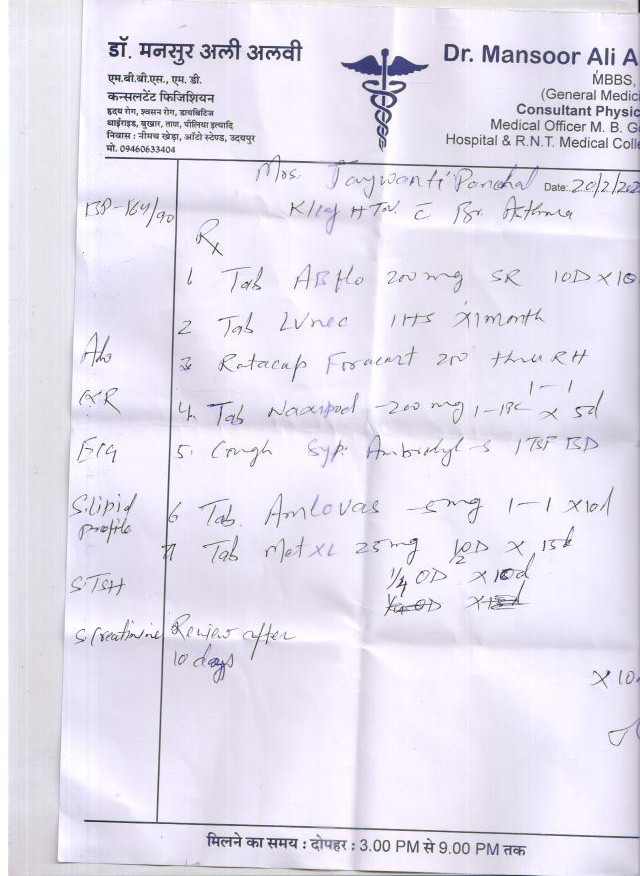 डॉ. मनसुर अली अलवी
एम.बी.बी.एस., एम. डी.
कन्सलटेंट फिजिशियन
हृदय रोग, श्वसन रोग, डायबिटिज
थाईराइड, बुखार, ताण, पीलिया इत्यादि
निवास : नीमच खेड़ा, ऑटो स्टेण्ड, उदयपुर
मो. 09460633404
Dr. Mansoor Ali A
MBBS,
(General Medici
Consultant Physic
Medical Officer M. B. G
Hospital & R.N.T. Medical Coll
Mrs. Jaywanti Panchal Date: 20/2/202
BP-164/90
K/c/o HTN c Br. Asthma
Rx
1 Tab AB flo 200 mg SR 10D x 10
2 Tab LVnec 1HS x1 month
3 Rotacap Foracort 200 thru RH
1-1
4. Tab 200 mg 1-1 x 5d
5. Cough Syp. Ambrodyl-S 1 TSF BD
6 Tab. Amlovas 5mg 1-1 x10d
7 Tab Met XL 25mg 1/2 OD x 15d
1/4 OD x 10d
Adv
CXR
ECG
S. Lipid profile
S. TSH
S. Creatinine
Review after
10 days
x 10
मिलने का समय : दोपहर : 3.00 PM से 9.00 PM तक